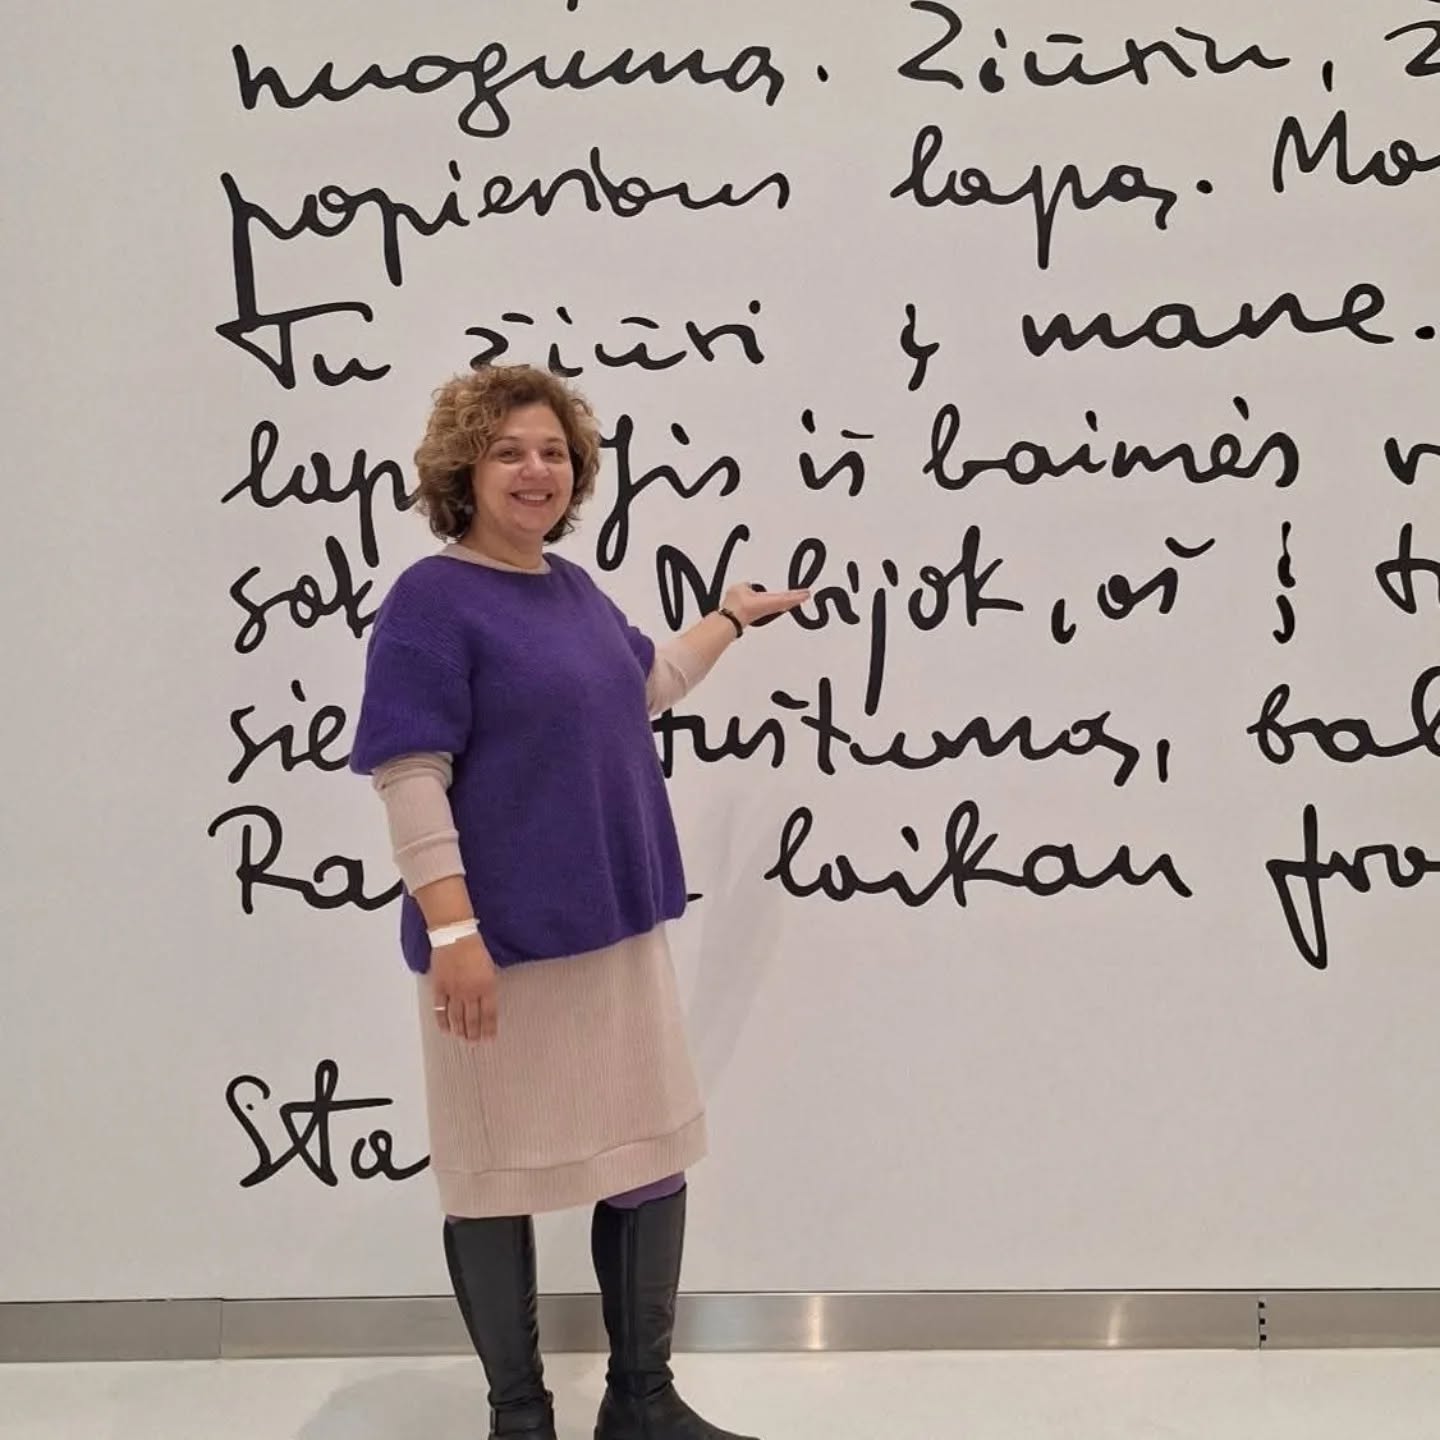 nuogumą. Žiūriu, ž
popieriaus lapą. Ma
Tu žiūri į mane.
lap Jis iš baimės
sak Nebijok, aš į tu
sie tuštumą, bal
Ra laikau
Sta